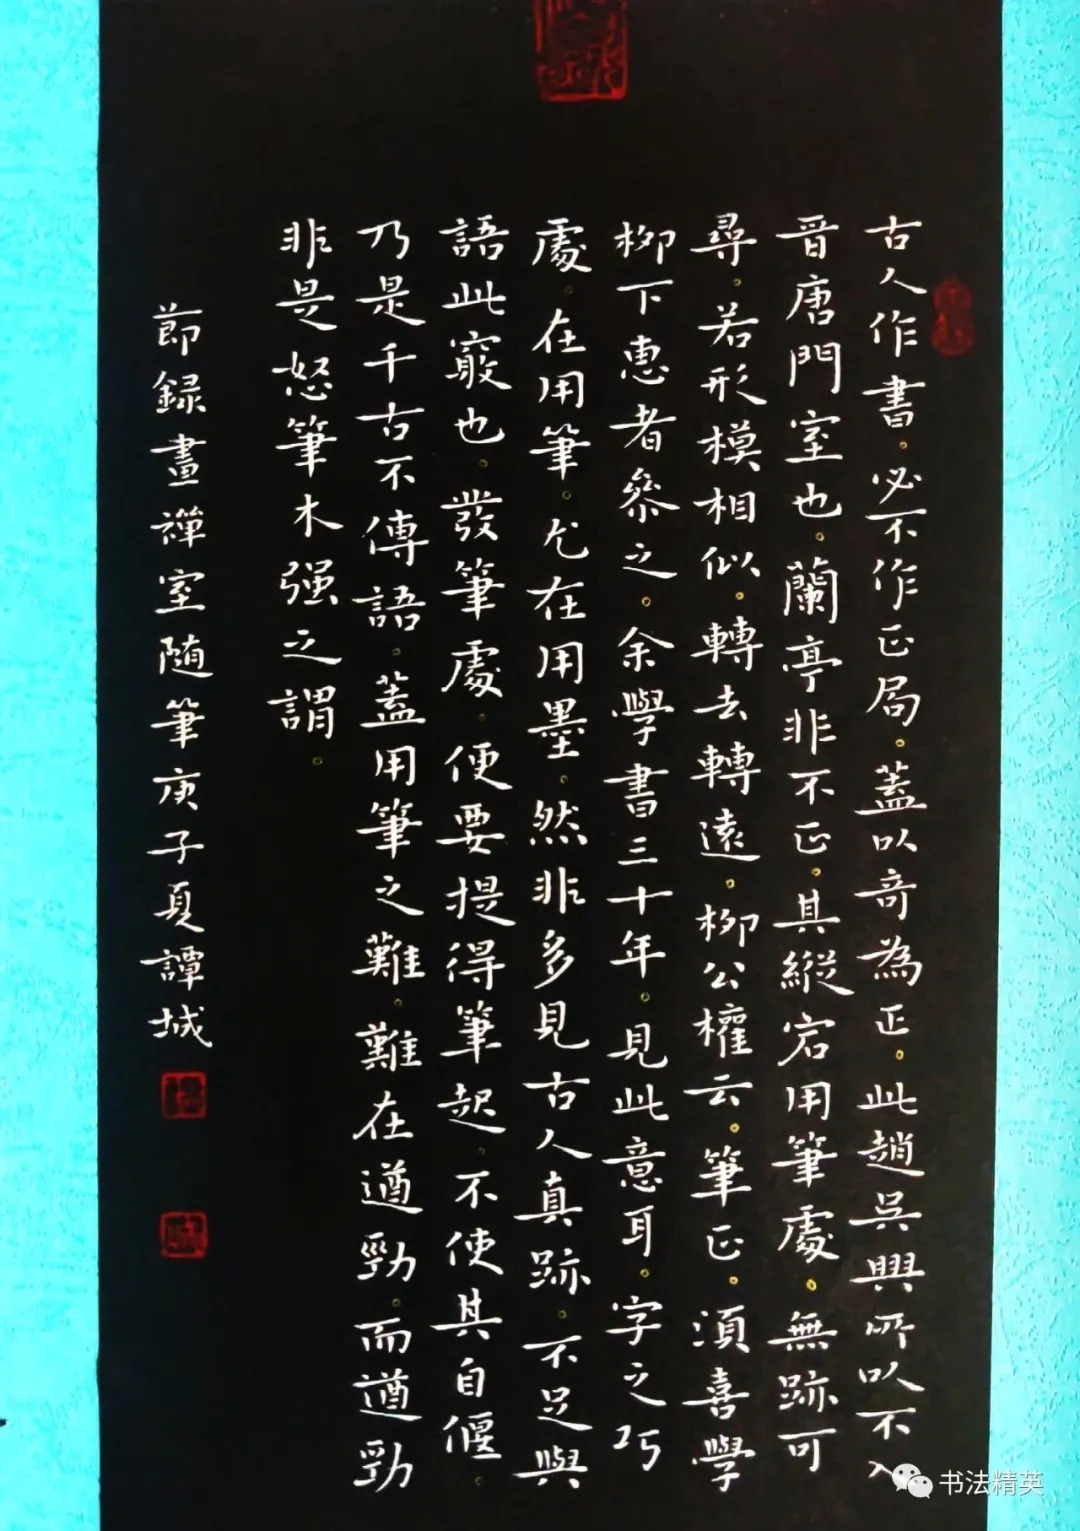 古人作書。必不作正局。蓋以奇為正。此趙吳興所以不入
晉唐門室也。蘭亭非不正。其縱宕用筆處。無跡可
尋。若形模相似。轉去轉遠。柳公權云。筆正。須喜學
柳下惠者參之。余學書三十年。見此意耳。字之巧
處。在用筆。尤在用墨。然非多見古人真跡。不足與
語此竅也。發筆處。便要提得筆起。不使其自偃。
乃是千古不傳語。蓋用筆之難。難在遒勁。而遒勁
非是怒筆木强之謂。
節録畫禪室随筆庚子夏譚城
书法精英